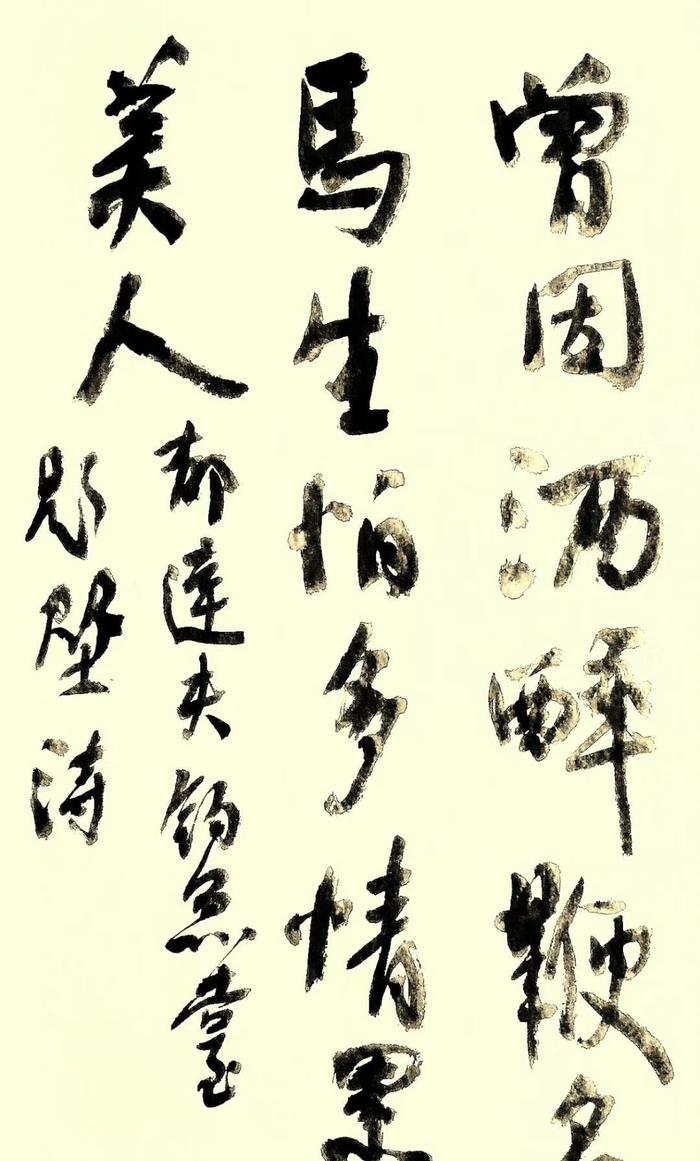 曾因酒醉鞭名
馬生怕多情累
美人
郁達夫釣魚臺
題壁 濤